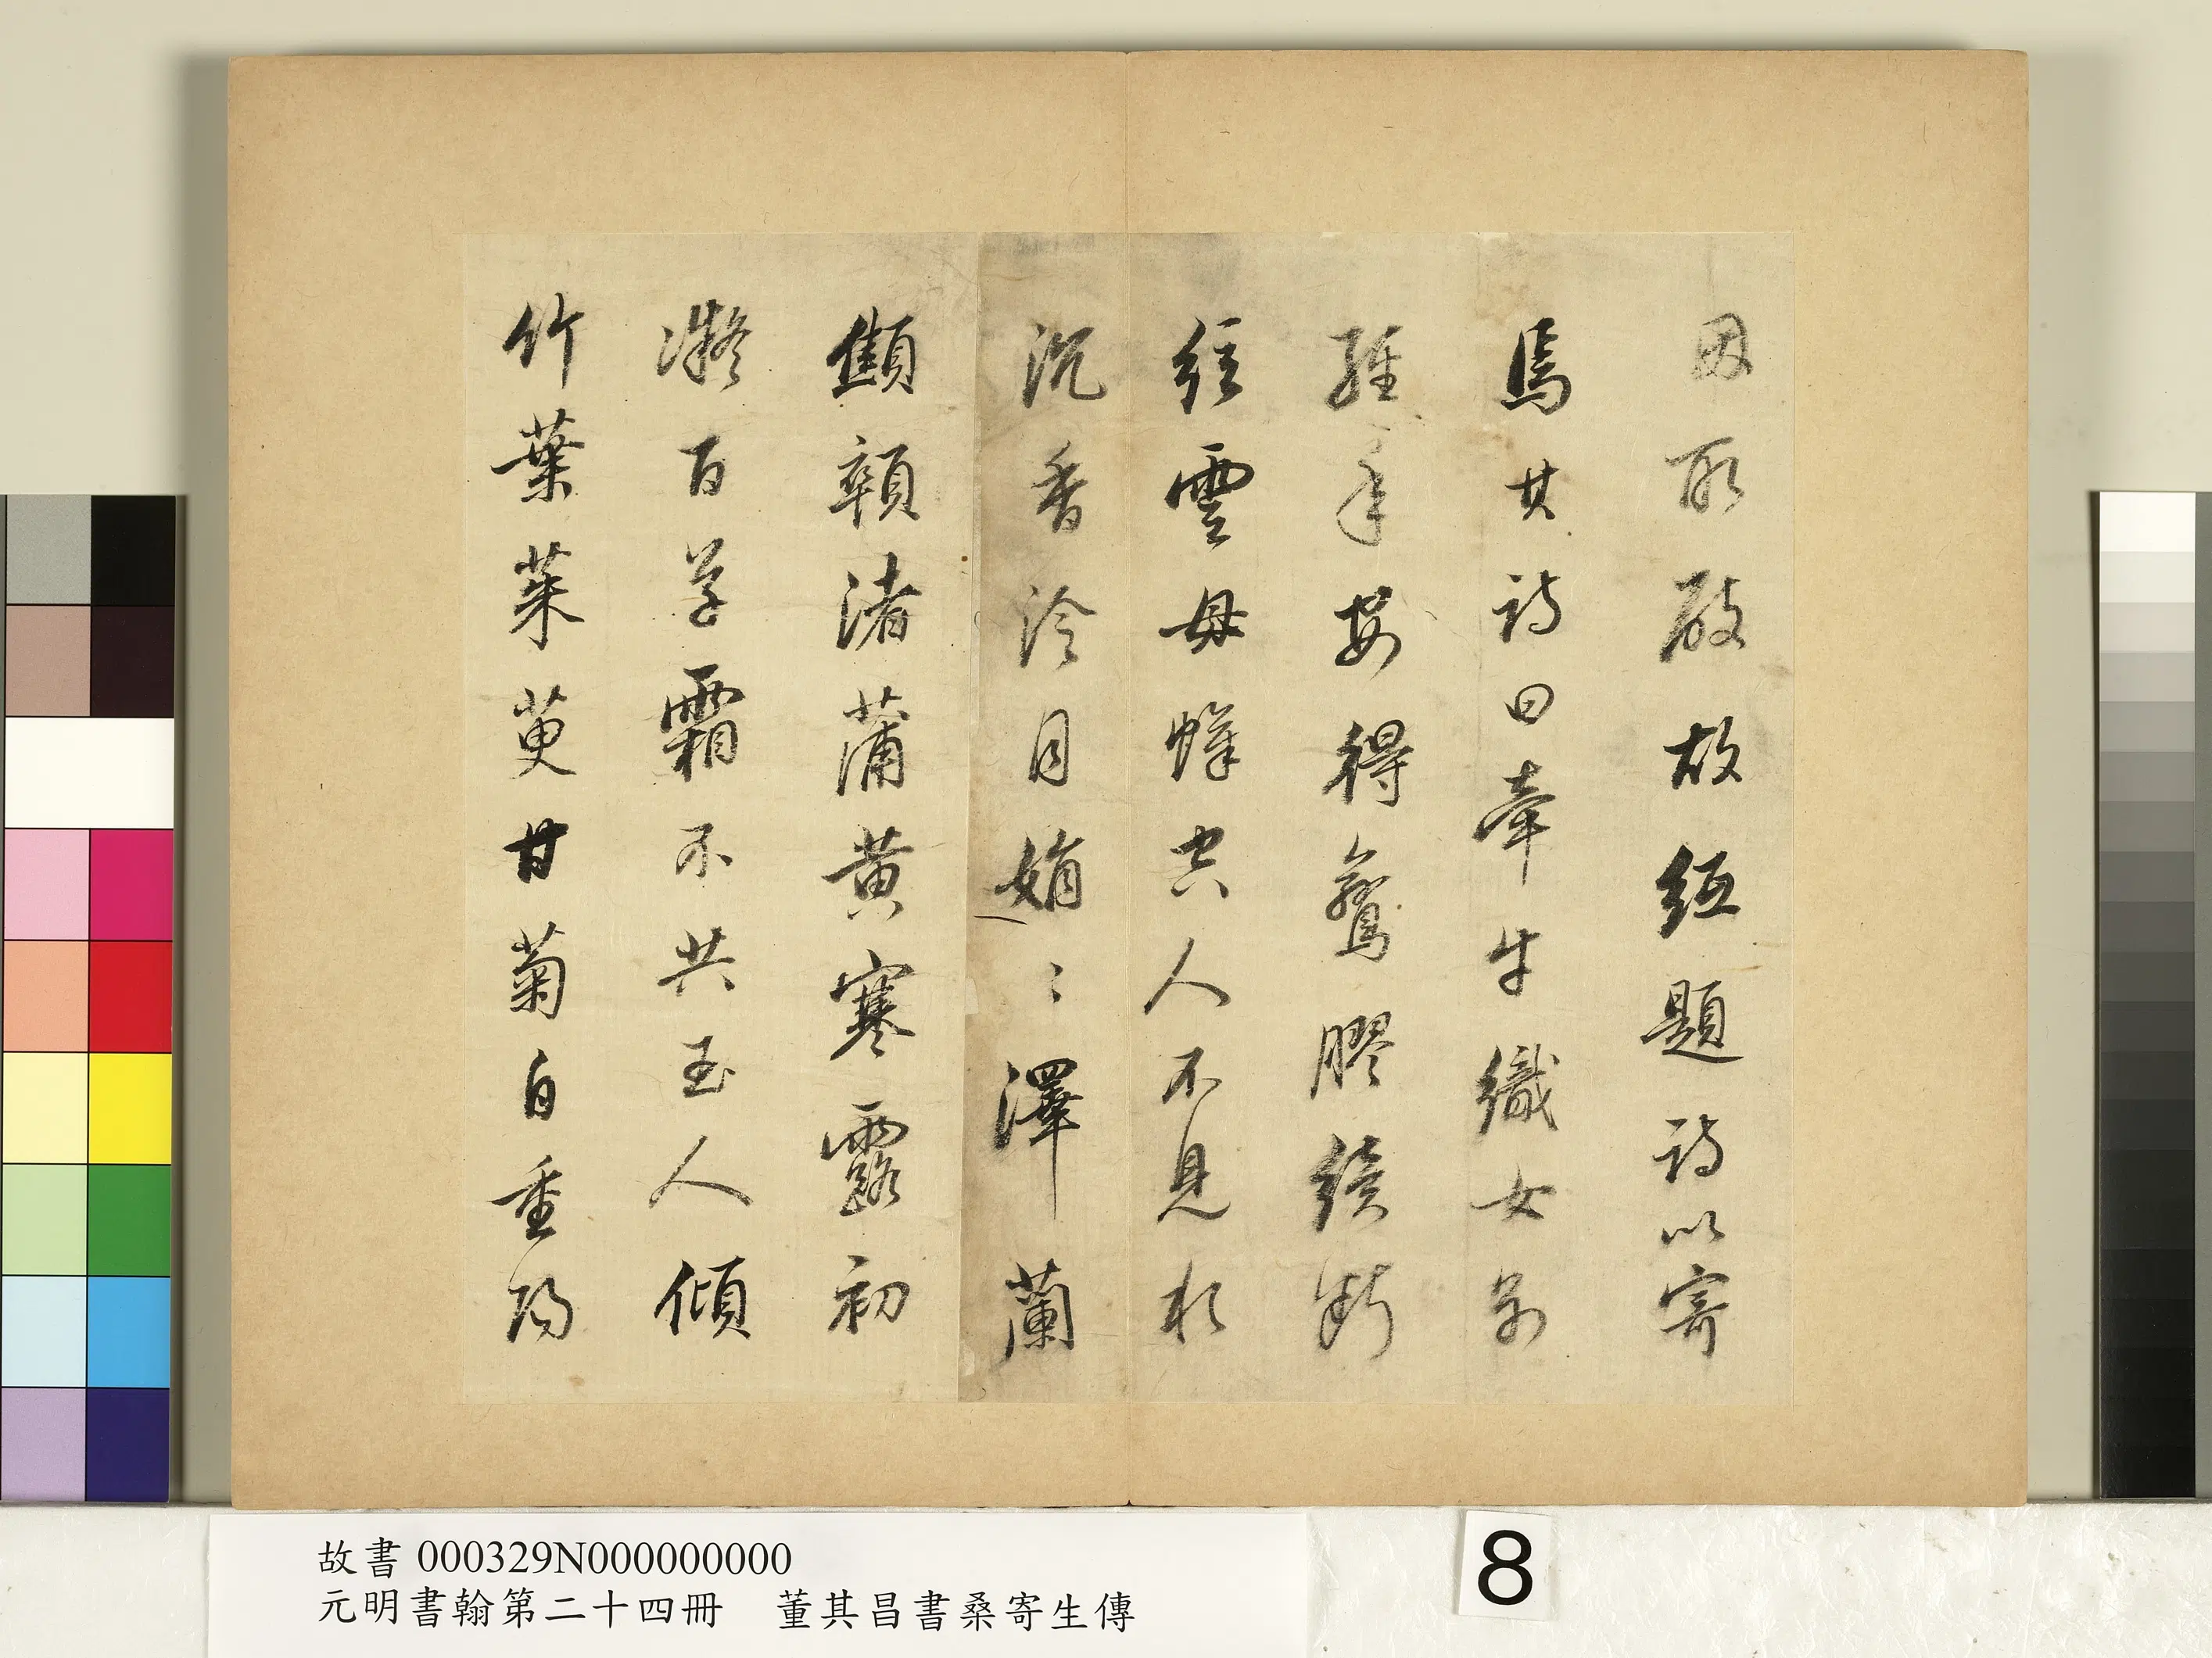 因取破故紙題詩以寄
焉其詩曰牽牛織女別
經年安得鸞膠續斷
絃雲母幃空人不見水
沉香冷月娟〻澤蘭
顦顇渚蒲黃寒露初
凝百草霜不共玉人傾
竹葉茱萸甘菊自重陽
故書 000329N000000000
元明書翰第二十四冊　董其昌書桑寄生傳
8